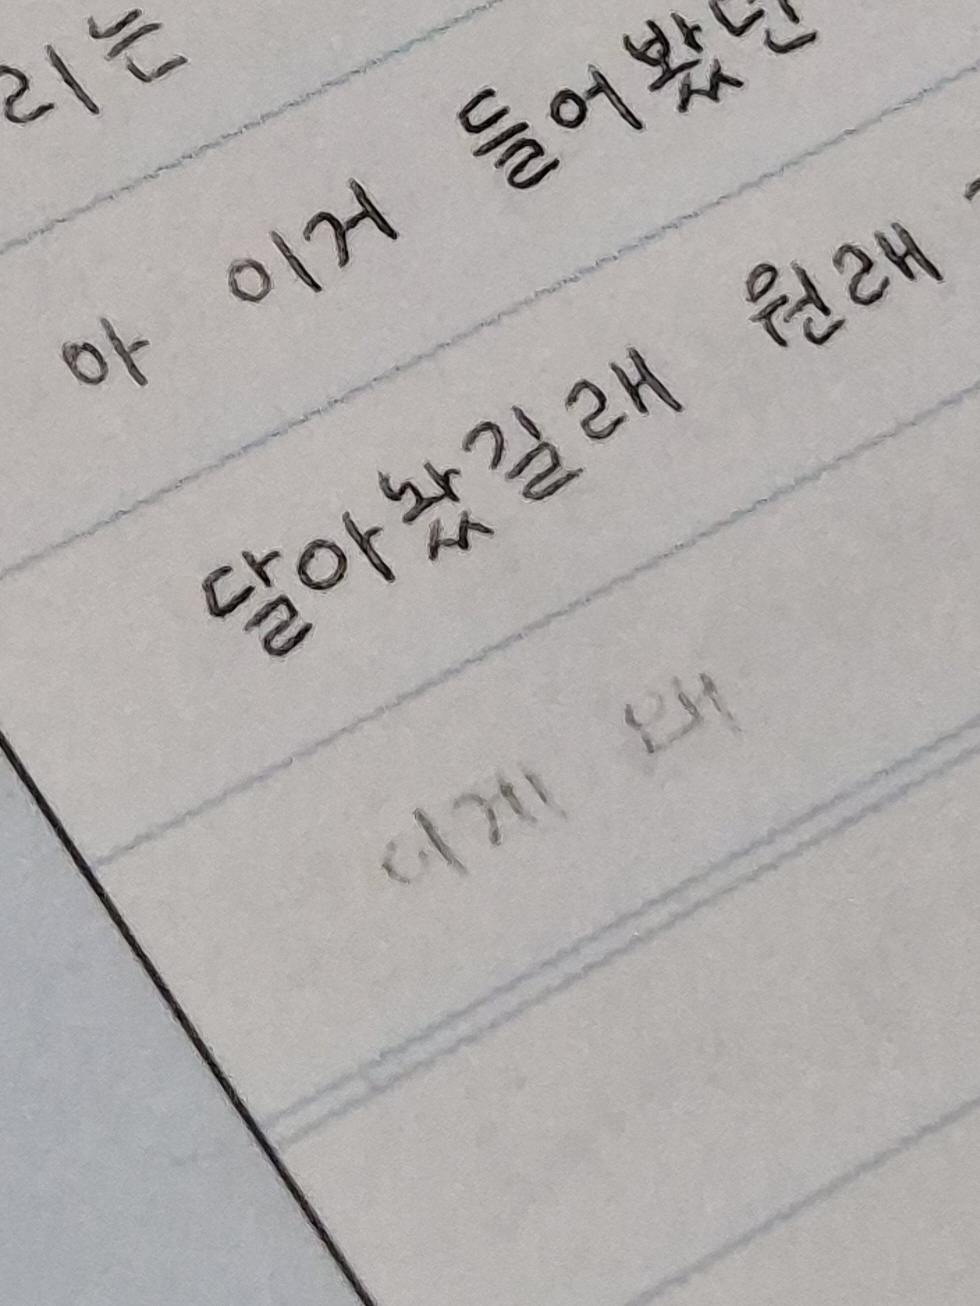 리는
아 이거 들어봤던
달아놨길래 원래
이게 왜